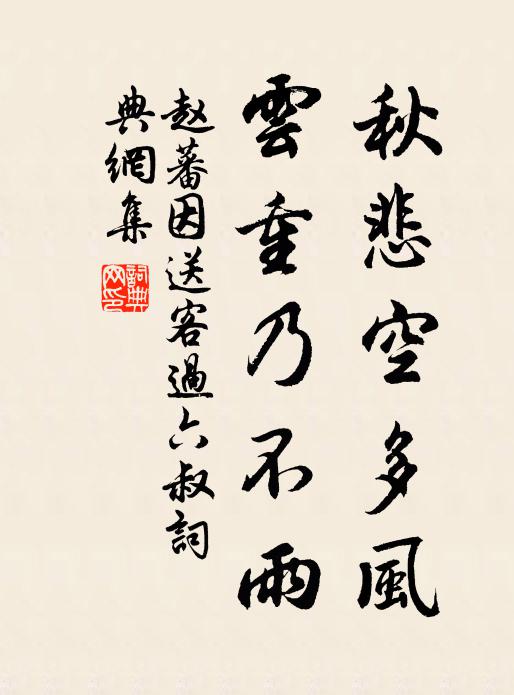 秋悲空多風
雲重乃不雨
赵蕃因送客過六叔詞
典網集
詞典網印